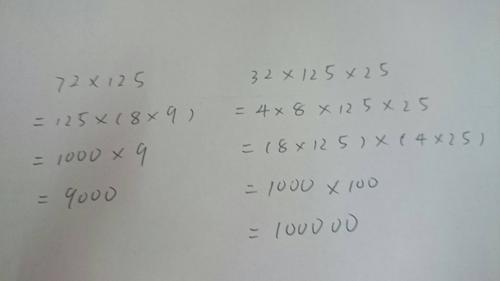 72×125
=125×(8×9)
=1000×9
=9000
32×125×25
=4×8×125×25
=(8×125)×(4×25)
=1000×100
=100000